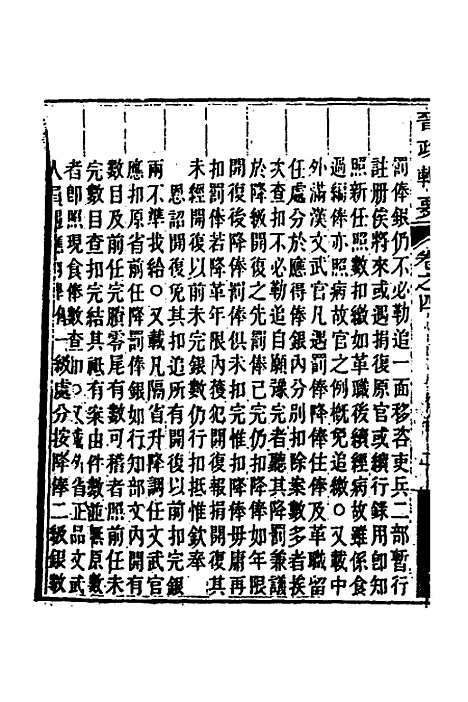 晉政輯要 卷之四
罰俸銀仍不必勒追一面移咨吏兵二部暫行
註册俟將來或遇捐復原官或續行錄用卽知
照新任照數扣繳如革職後續經病故雖係食
過編俸亦照病故官之例槪免追繳○又載中
外滿漢文武官凡遇罰俸降俸住俸及革職留
任處分於應得俸銀內分別扣除案數多者挨
次查扣不必勒追自願豫完者聽其降罰兼議
於降級開復之先罰俸已完仍扣降俸如年限
開復後降俸罰俸俱未扣完惟扣降俸毋庸再
扣罰俸若降革年限內獲犯開復報捐開復其
未經開復以前未完銀數仍行扣抵惟欽奉
恩詔開復免其扣追所有開復以前扣完銀
兩不準找給○又載凡隔省升降調任文武官
應扣原省前任降罰俸銀如行知部文內開有
數目及前任完賸零尾有數可稽者照前任未
完數目查扣完結其祇有案由件數並無原數
者卽照現食俸數查扣○又 省正 品文武
人員 一級處分按降俸二級銀數